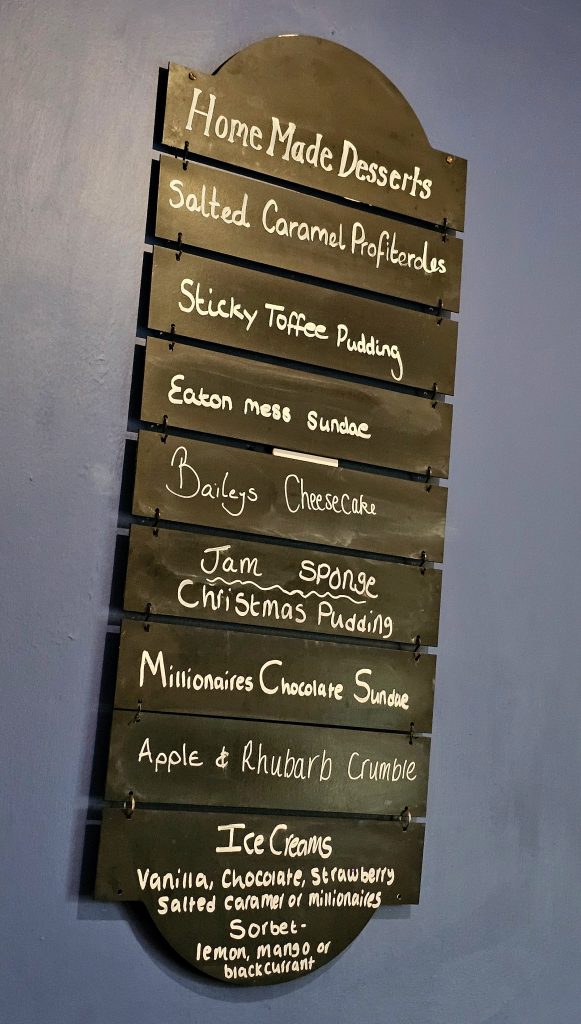 Home Made Desserts
Salted Caramel Profiteroles
Sticky Toffee Pudding
Eaton mess sundae
Baileys Cheesecake
Jam sponge
Christmas Pudding
Millionaires Chocolate Sundae
Apple & Rhubarb Crumble
Ice Creams
Vanilla, Chocolate, Strawberry
Salted caramel or millionaires
Sorbet-
lemon, mango or
blackcurrant